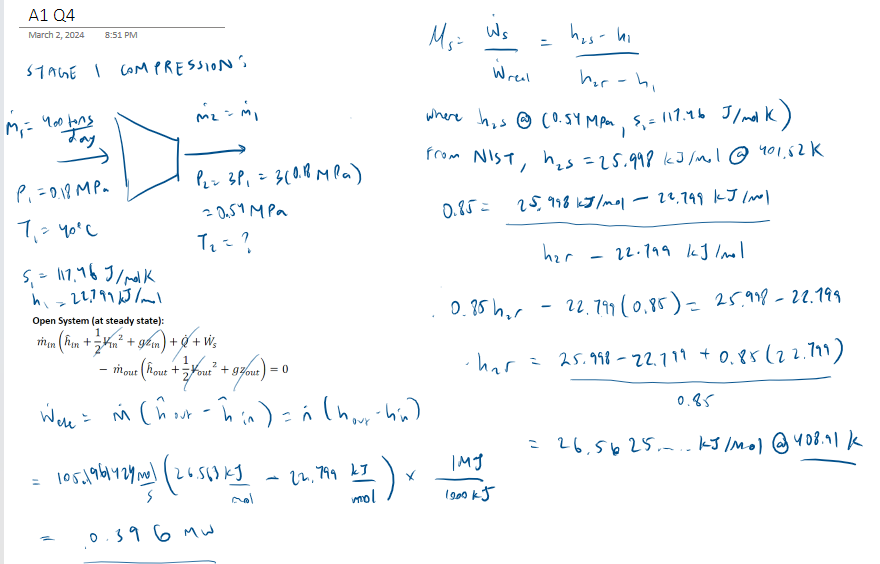 A1 Q4
March 2, 2024 8:51 PM
STAGE 1 COMPRESSION:
ṁ₁ = 400 tons/day
ṁ₂ = ṁ₁
P₁ = 0.18 MPa
P₂ = 3P₁ = 3(0.18 MPa)
= 0.54 MPa
T₁ = 40°C
T₂ = ?
s₁ = 117.46 J/mol K
h₁ = 22.799 kJ/mol
Open System (at steady state):
ṁin (ĥin + 1/2 vin² + gzin) + Q̇ + Ẇs
− ṁout (ĥout + 1/2 vout² + gzout) = 0
Ẇele = ṁ (ĥout - ĥin) = ṅ (hout - hin)
= 105.1961424 mol/s (26.563 kJ/mol - 22.799 kJ/mol) × 1MJ/1000 kJ
= 0.396 MW
Ms = Ẇs/Ẇreal = h2s - h1/h2r - h1
where h2s @ (0.54 MPa, s₁ = 117.46 J/mol K)
From NIST, h2s = 25.998 kJ/mol @ 401.52 K
0.85 = 25.998 kJ/mol - 22.799 kJ/mol
h2r - 22.799 kJ/mol
0.85 h2r - 22.799(0.85) = 25.998 - 22.799
h2r = 25.998 - 22.799 + 0.85(22.799)
0.85
= 26.5625.... kJ/mol @ 408.91 K